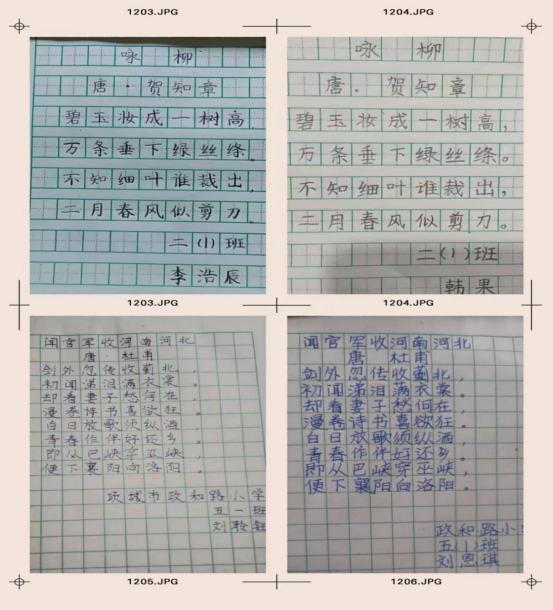 1203.JPG
1204.JPG
咏 柳
唐·贺知章
碧玉妆成一树高
万条垂下绿丝绦。
不知细叶谁裁出,
二月春风似剪刀。
二(1)班
李浩辰
咏 柳
唐·贺知章
碧玉妆成一树高,
万条垂下绿丝绦。
不知细叶谁裁出,
二月春风似剪刀。
二(1)班
韩果
1203.JPG
1204.JPG
闻官军收河南河北
唐·杜甫
剑外忽传收蓟北,
初闻涕泪满衣裳。
却看妻子愁何在,
漫卷诗书喜欲狂。
白日放歌须纵酒,
青春作伴好还乡。
即从巴峡穿巫峡,
便下襄阳向洛阳。
项城市政和路小学
五一班
刘聆钰
闻官军收河南河北
唐 杜甫
剑外忽传收蓟北,
初闻涕泪满衣裳。
却看妻子愁何在,
漫卷诗书喜欲狂。
白日放歌须纵酒,
青春作伴好还乡。
即从巴峡穿巫峡,
便下襄阳向洛阳。
政和路小
五(1)班
刘恩琪
1205.JPG
1206.JPG